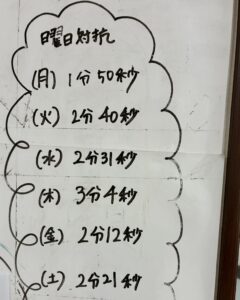 曜日対抗
(月) 1分50秒
(火) 2分40秒
(水) 2分31秒
(木) 3分4秒
(金) 2分12秒
(土) 2分21秒